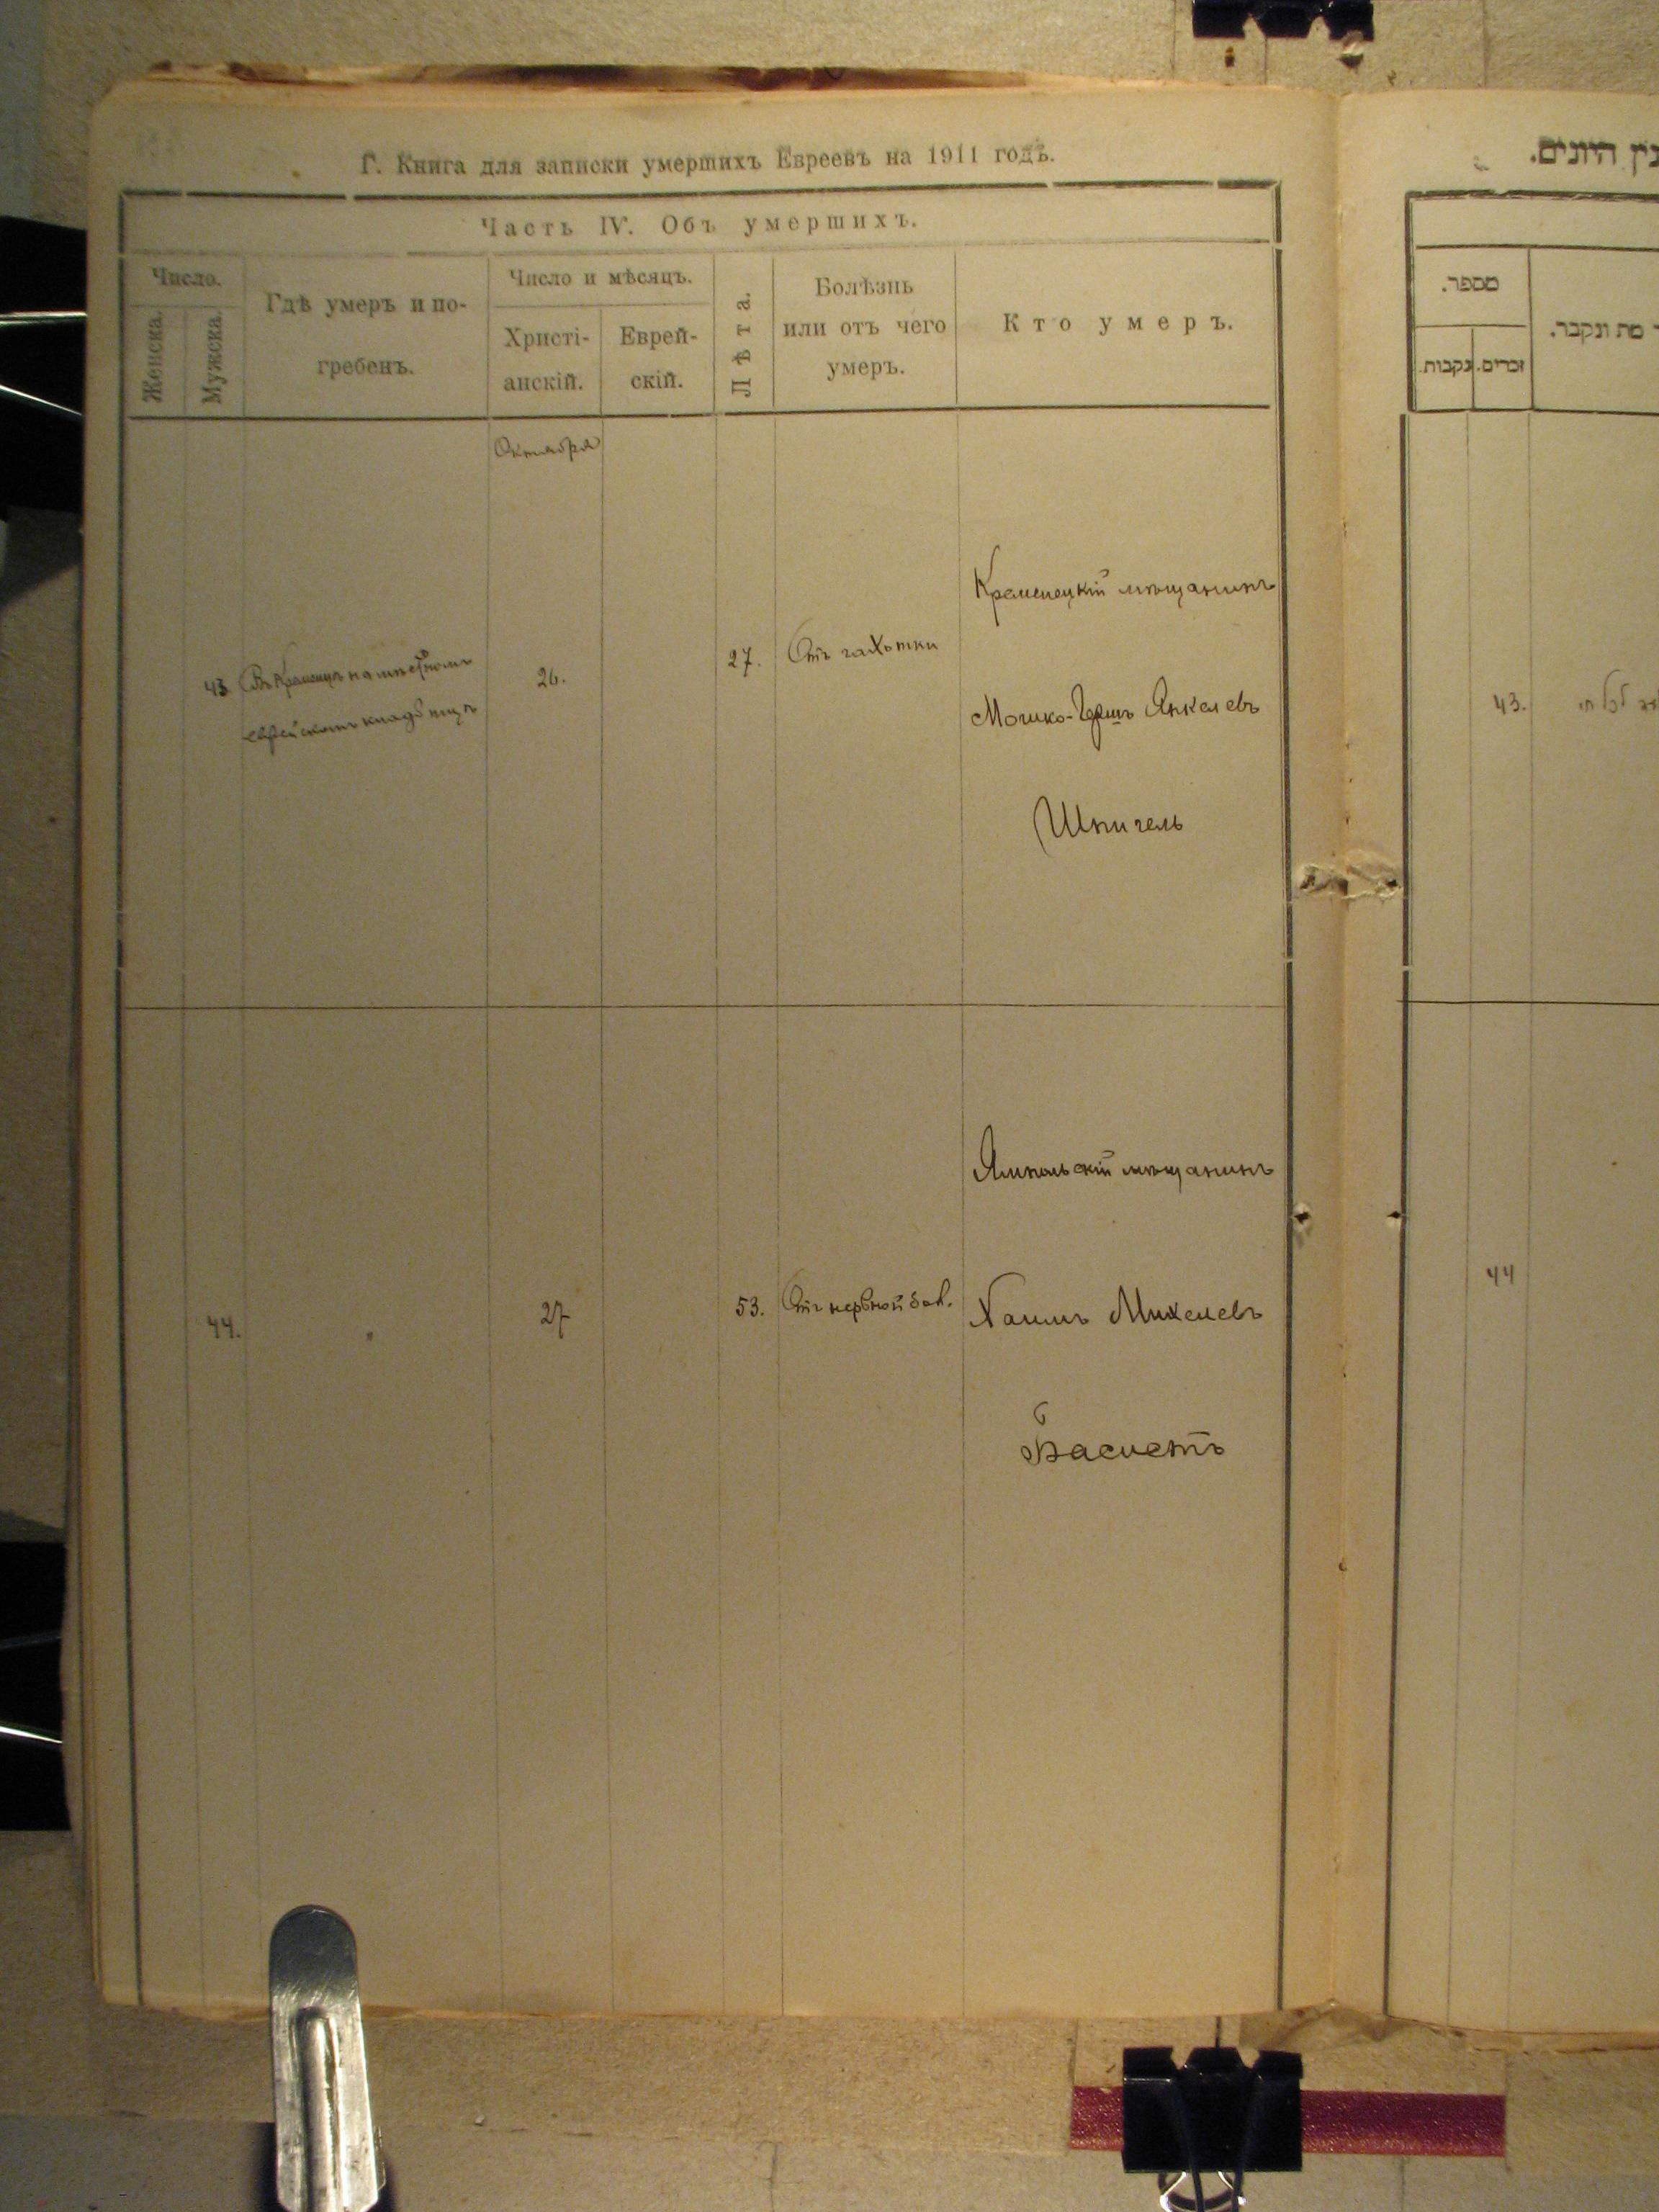 Г. Книга для записки умершихъ Евреевъ на 1911 годъ.
Часть IV. Объ умершихъ.
Число.
Женска.
Мужска.
Гдѣ умеръ и по-
гребенъ.
Число и мѣсяцъ.
Христі-
анскій.
Еврей-
скій.
Лѣта.
Болѣзнь
или отъ чего
умеръ.
Кто умеръ.
Октября
43.
Въ Кременцѣ на мѣстномъ
еврейскомъ кладбищѣ
26.
27.
Отъ чахотки
Кременецкій мѣщанинъ
Мошко-Гершъ Янкелевъ
Шпигель
44.
"
27
53.
Отъ нервной бол.
Ямпольскій мѣщанинъ
Хаимъ Михелевъ
Баснетъ
מספר.
זכרים.
נקבות.
מת ונקבר.
43.
44